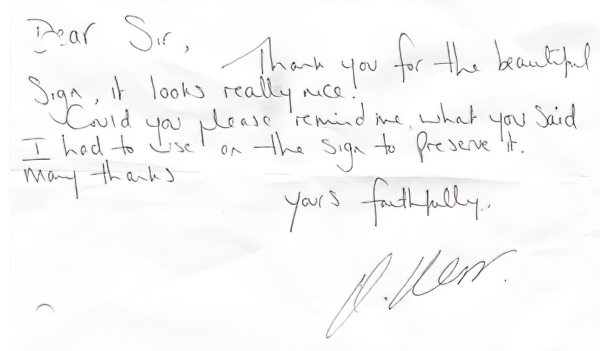 Dear Sir,
Thank you for the beautiful
Sign, it looks really nice!
Could you please remind me, what you said
I had to use on the sign to preserve it.
Many thanks
yours faithfully.